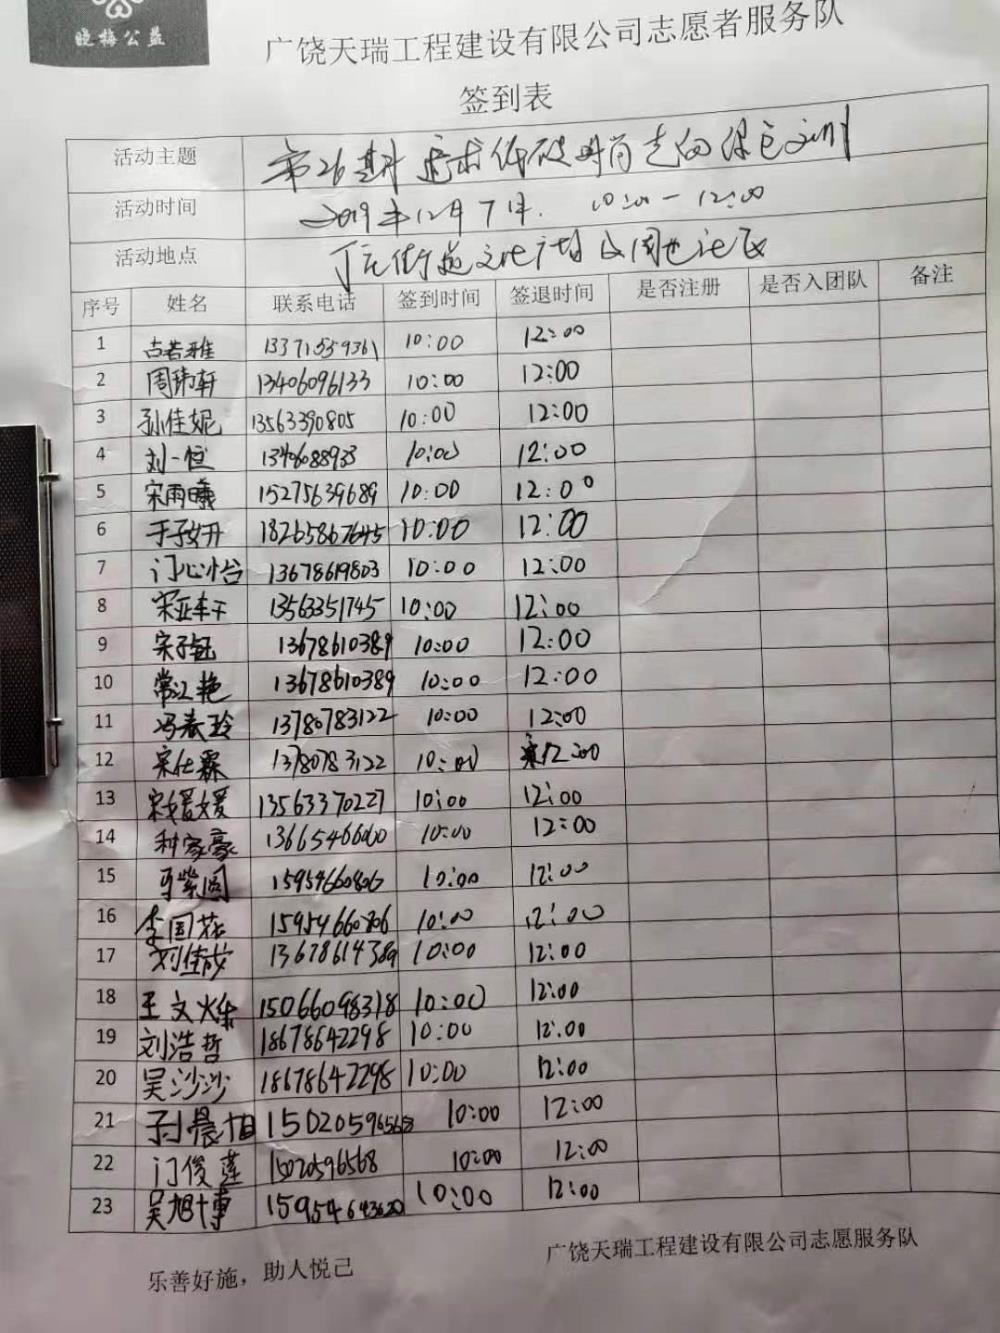 晓梅公益
广饶天瑞工程建设有限公司志愿者服务队
签到表
活动主题 第26期
活动时间 2019年12月7日. 10:00-12:00
活动地点 丁庄街道文化广场及周边社区
序号 姓名 联系电话 签到时间 签退时间 是否注册 是否入团队 备注
1 古若雅 13371559361 10:00 12:00
2 周玮轩 13406096133 10:00 12:00
3 孙佳妮 13563390805 10:00 12:00
4 刘一恒 10:00 12:00
5 宋雨曦 15275639689 10:00 12:00
6 于子妍 18265867645 10:00 12:00
7 门心怡 13678619803 10:00 12:00
8 宋亚轩 13563351745 10:00 12:00
9 宋子钰 13678610389 10:00 12:00
10 常江艳 13678610389 10:00 12:00
11 冯春玲 13780783122 10:00 12:00
12 宋仕霖 13780783122 10:00 12:00
13 宋媛媛 13563370227 10:00 12:00
14 种家豪 13665466000 10:00 12:00
15 马紫圆 15954660806 10:00 12:00
16 李国花 15954660806 10:00 12:00
17 刘佳 13678614389 10:00 12:00
18 王文烁 15066098318 10:00 12:00
19 刘浩哲 18678642298 10:00 12:00
20 吴沙沙 18678642298 10:00 12:00
21 晨旭 15020596568 10:00 12:00
22 门俊莲 1502596568 10:00 12:00
23 吴旭博 15954643620 10:00 12:00
广饶天瑞工程建设有限公司志愿服务队
乐善好施，助人悦己